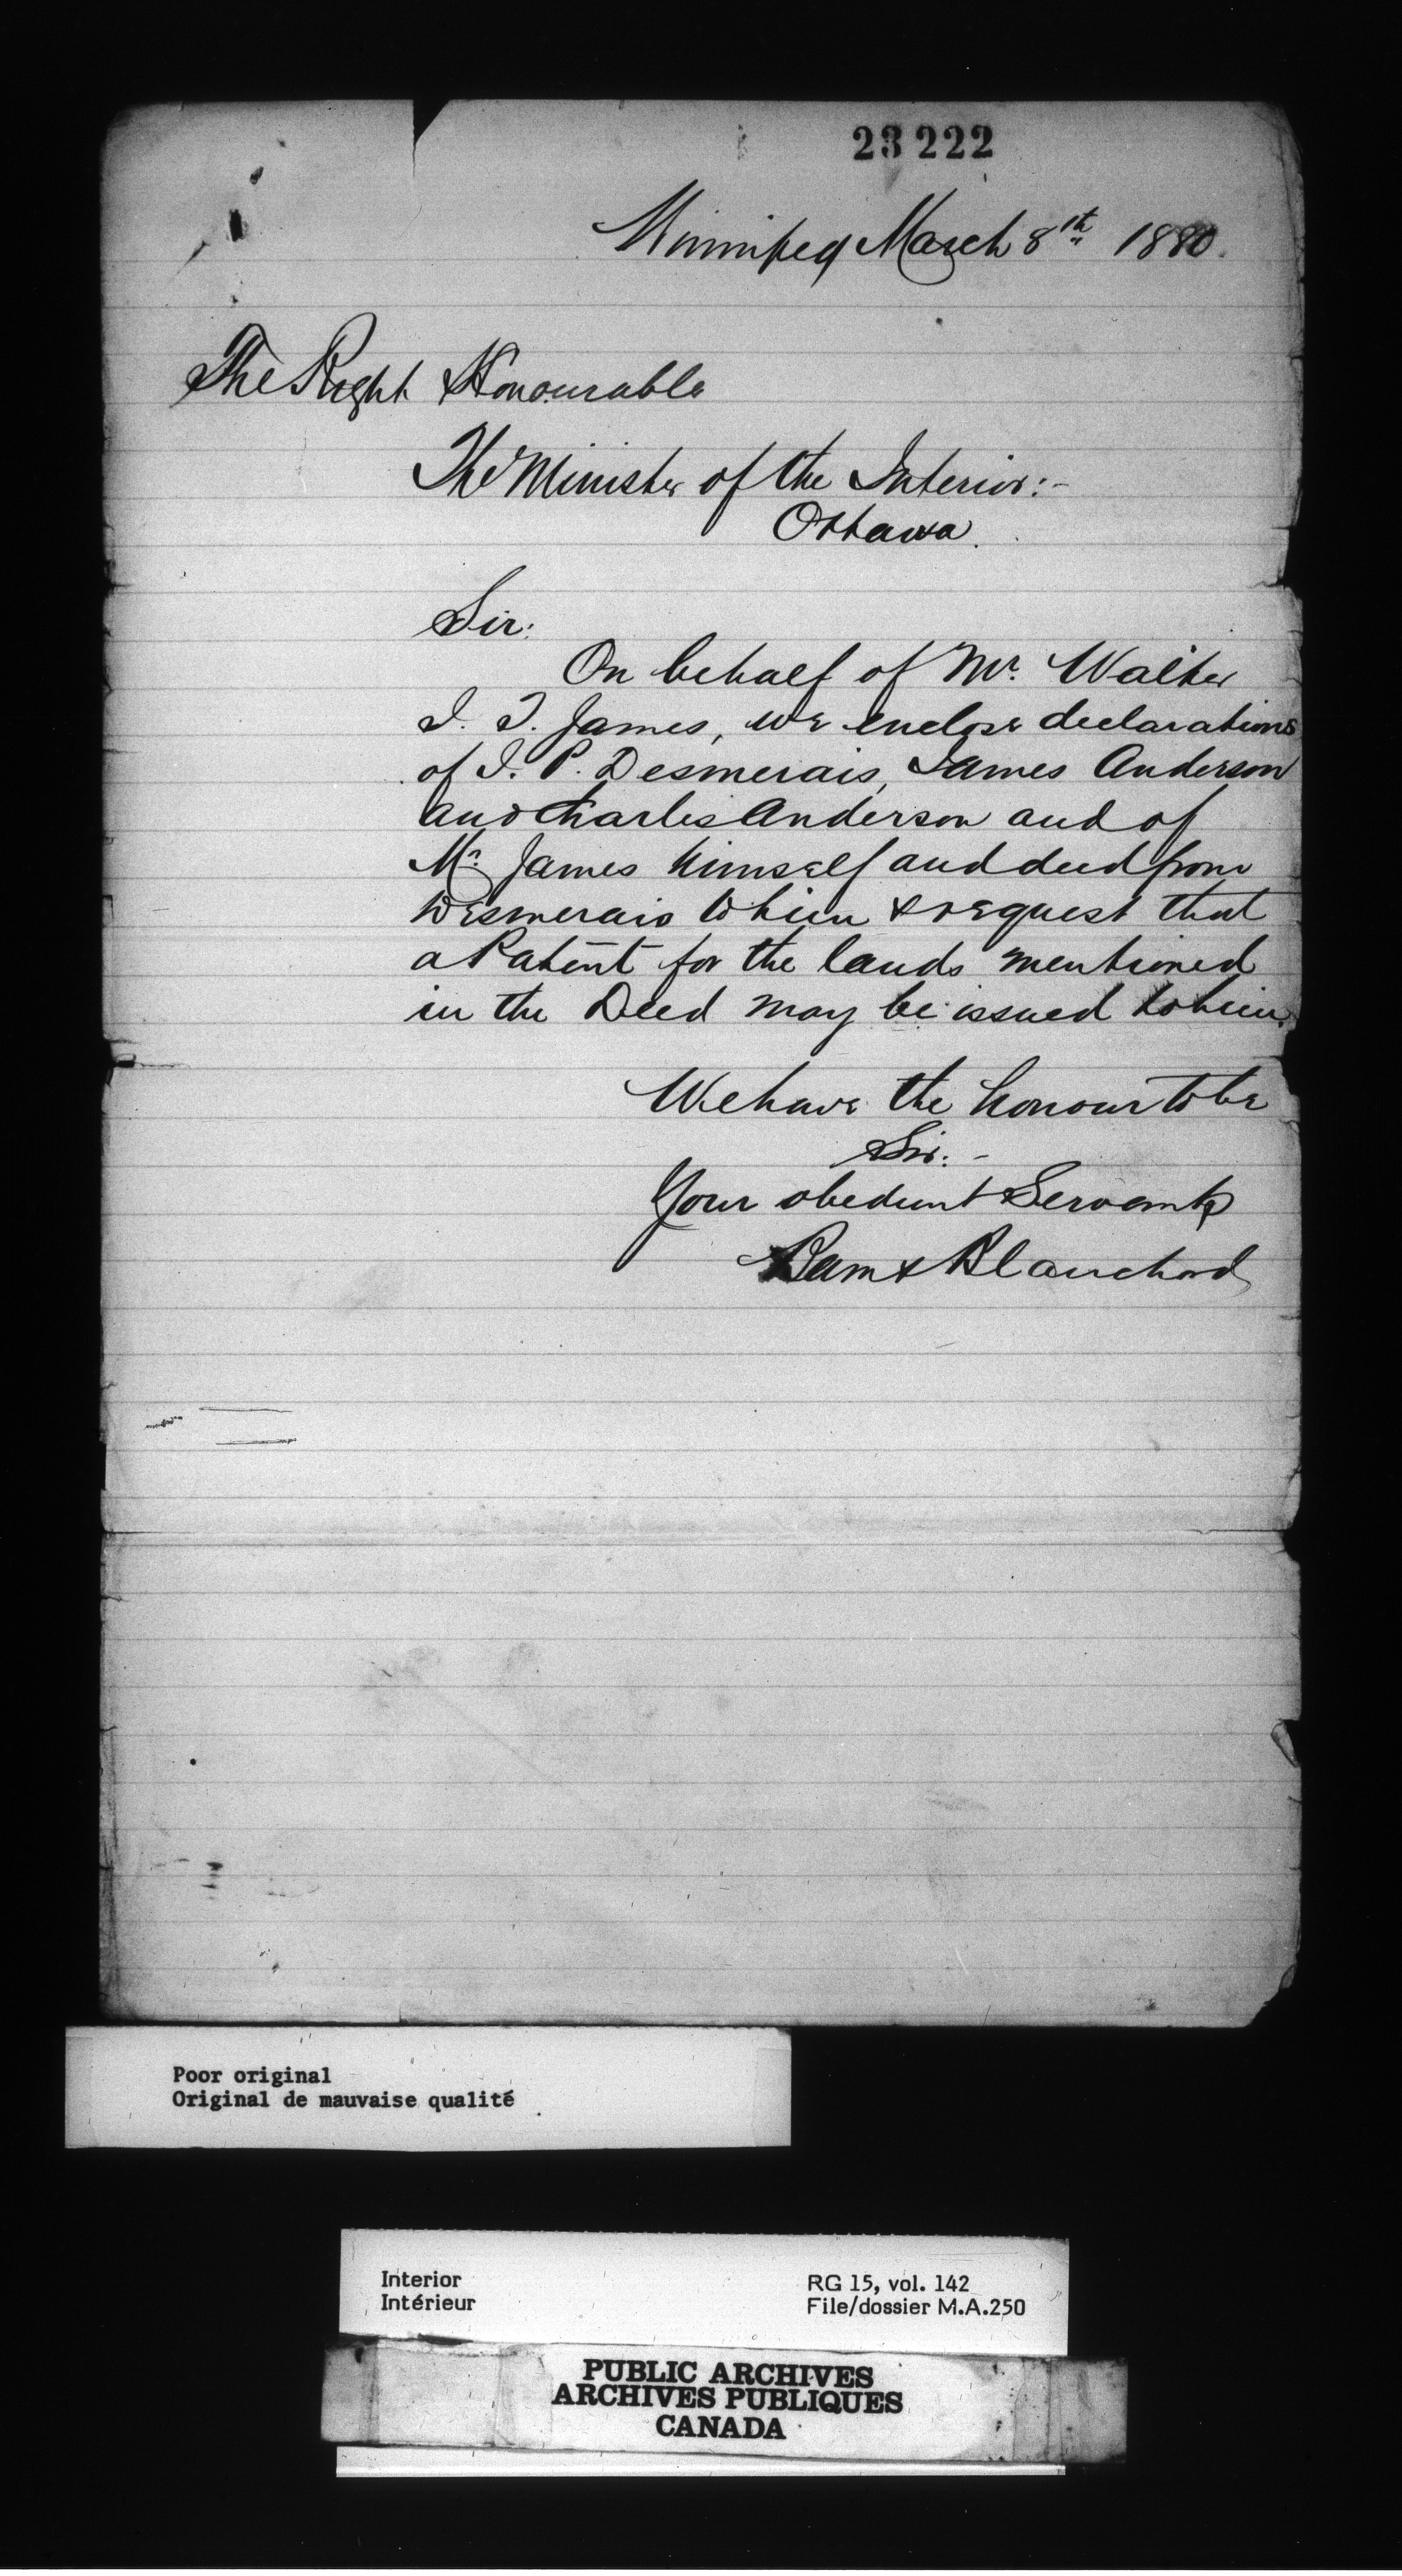 23222
Winnipeg March 8th 1880.
The Right Honourable
The Minister of the Interior:-
Ottawa.
Sir:
On behalf of Mr. Walter
J. S. James, we enclose declarations
of J. P. Desmerais, James Anderson
and Charles Anderson and of
Mr. James himself and deed from
Desmerais to him & request that
a Patent for the lands mentioned
in the Deed may be issued to him.
We have the honour to be
Sir:-
Your obedient Servants
Bain & Blanchard
Poor original
Original de mauvaise qualité
Interior
Intérieur
RG 15, vol. 142
File/dossier M.A.250
PUBLIC ARCHIVES
ARCHIVES PUBLIQUES
CANADA